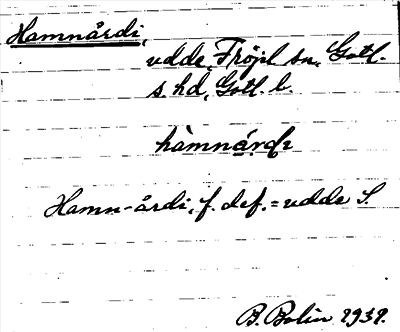 Hamnårdi,
udde, Fröjel sn, Gotl.
s. hd, Gotl. l.
hàmnár
Hamn-årdi, f. def. = udde S.
B. Bolin 1939.